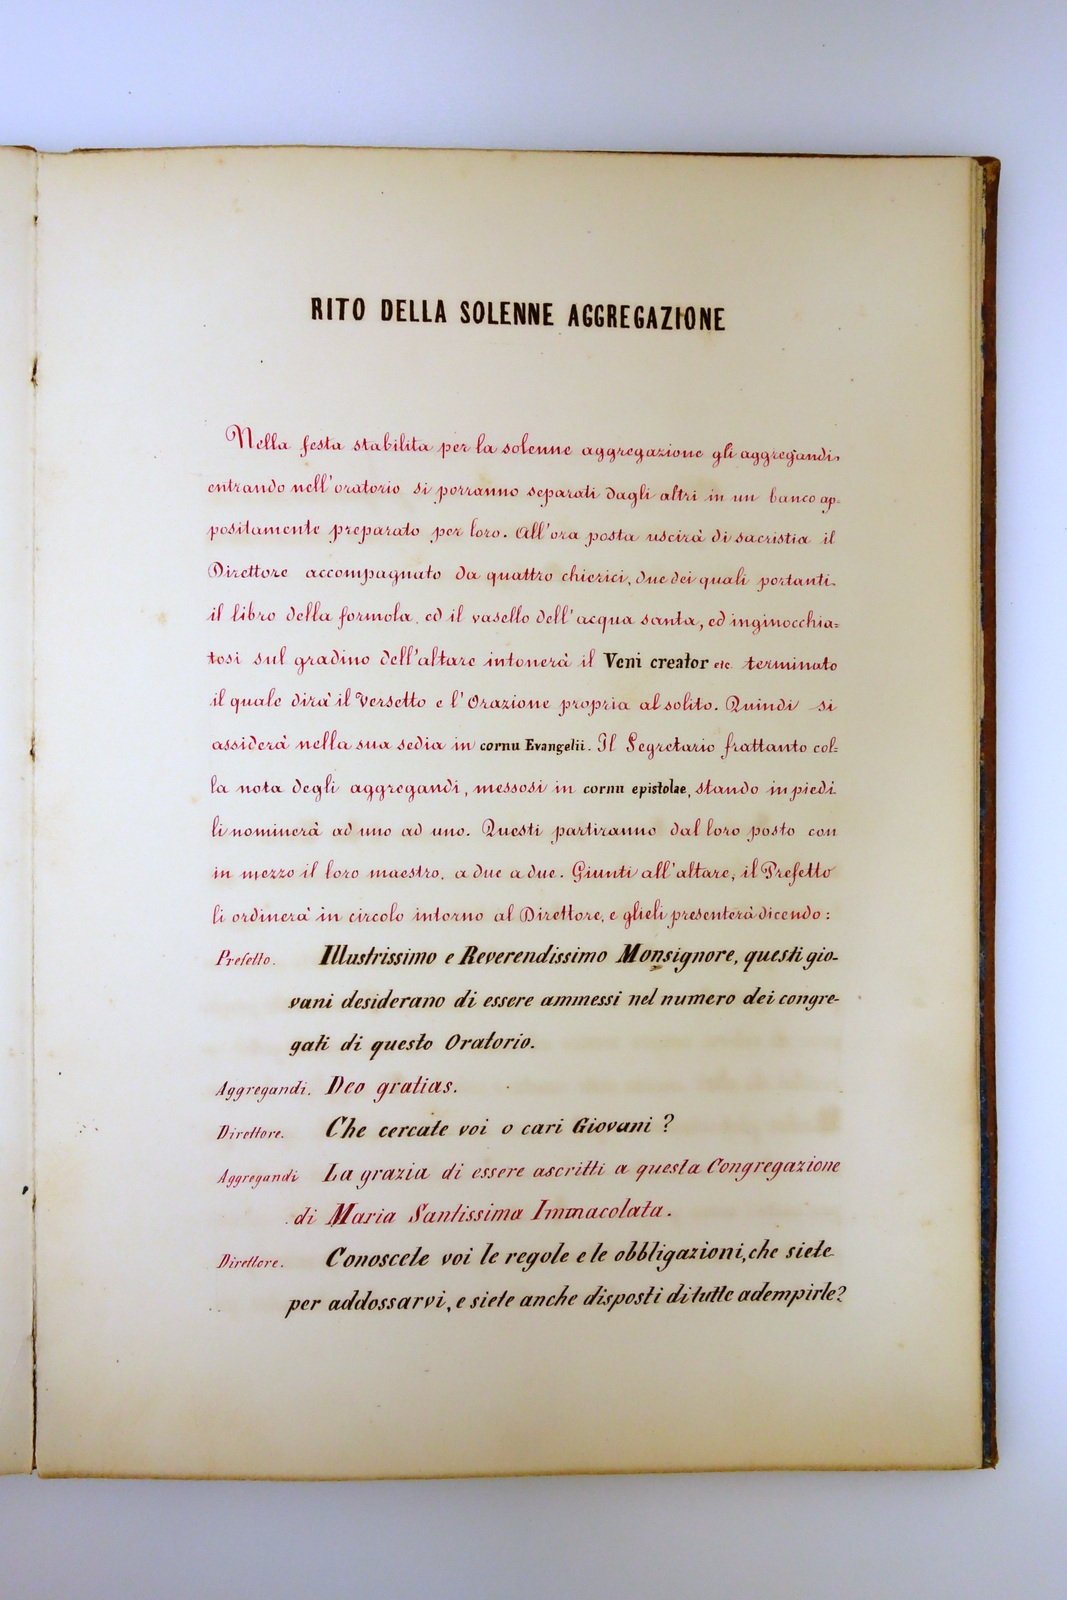 RITO DELLA SOLENNE AGGREGAZIONE
Nella festa stabilita per la solenne aggregazione gli aggregandi,
entrando nell'oratorio si porranno separati dagli altri in un banco ap-
positamente preparato per loro. All'ora posta uscirà di sacristia il
Direttore accompagnato da quattro chierici, due dei quali portanti
il libro della formola, ed il vasello dell'acqua santa, ed inginocchia-
tosi sul gradino dell'altare intonerà il Veni creator etc. terminato
il quale dirà il Versetto e l'Orazione propria al solito. Quindi si
assiderà nella sua sedia in cornu Evangelii. Il Segretario frattanto col-
la nota degli aggregandi, messosi in cornu epistolae, stando in piedi
li nominerà ad uno ad uno. Questi partiranno dal loro posto con
in mezzo il loro maestro, a due a due. Giunti all'altare, il Prefetto
li ordinerà in circolo intorno al Direttore, e glieli presenterà dicendo:
Prefetto. Illustrissimo e Reverendissimo Monsignore, questi gio-
vani desiderano di essere ammessi nel numero dei congre-
gati di questo Oratorio.
Aggregandi. Deo gratias.
Direttore. Che cercate voi o cari Giovani?
Aggregandi La grazia di essere ascritti a questa Congregazione
di Maria Santissima Immacolata.
Direttore. Conoscete voi le regole e le obbligazioni, che siete
per addossarvi, e siete anche disposti di tutte adempirle?